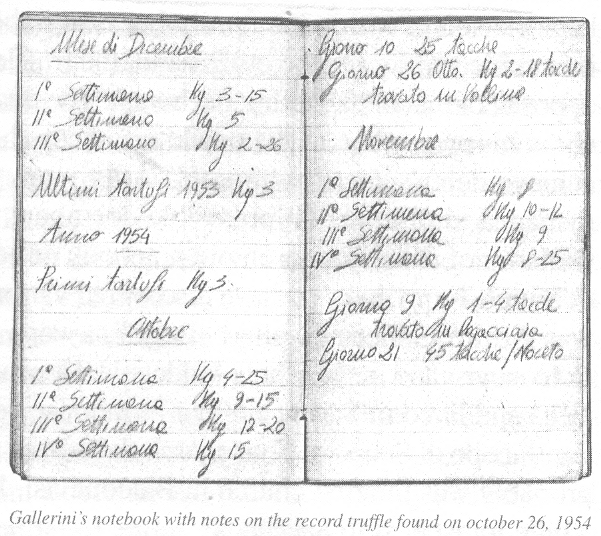 Mese di Dicembre
Iª Settimana Kg 3-15
IIª Settimana Kg 5
IIIª Settimana Kg 2-26
Ultimi tartufi 1953 Kg 3
Anno 1954
Primi tartufi Kg 3.
Ottobre
Iª Settimana Kg 4-25
IIª Settimana Kg 9-15
IIIª Settimana Kg 12-20
IVª Settimana Kg 15
Giorno 10 25 tacche
Giorno 26 Otto. Kg 2-18 tacche
trovato in
Novembre
Iª Settimana Kg 8
IIª Settimana Kg 10-12
IIIª Settimana Kg 9
IVª Settimana Kg 8-25
Giorno 9 Kg 1-4 tacche
trovato in
Giorno 21 45 tacche / Noceto
Gallerini's notebook with notes on the record truffle found on october 26, 1954